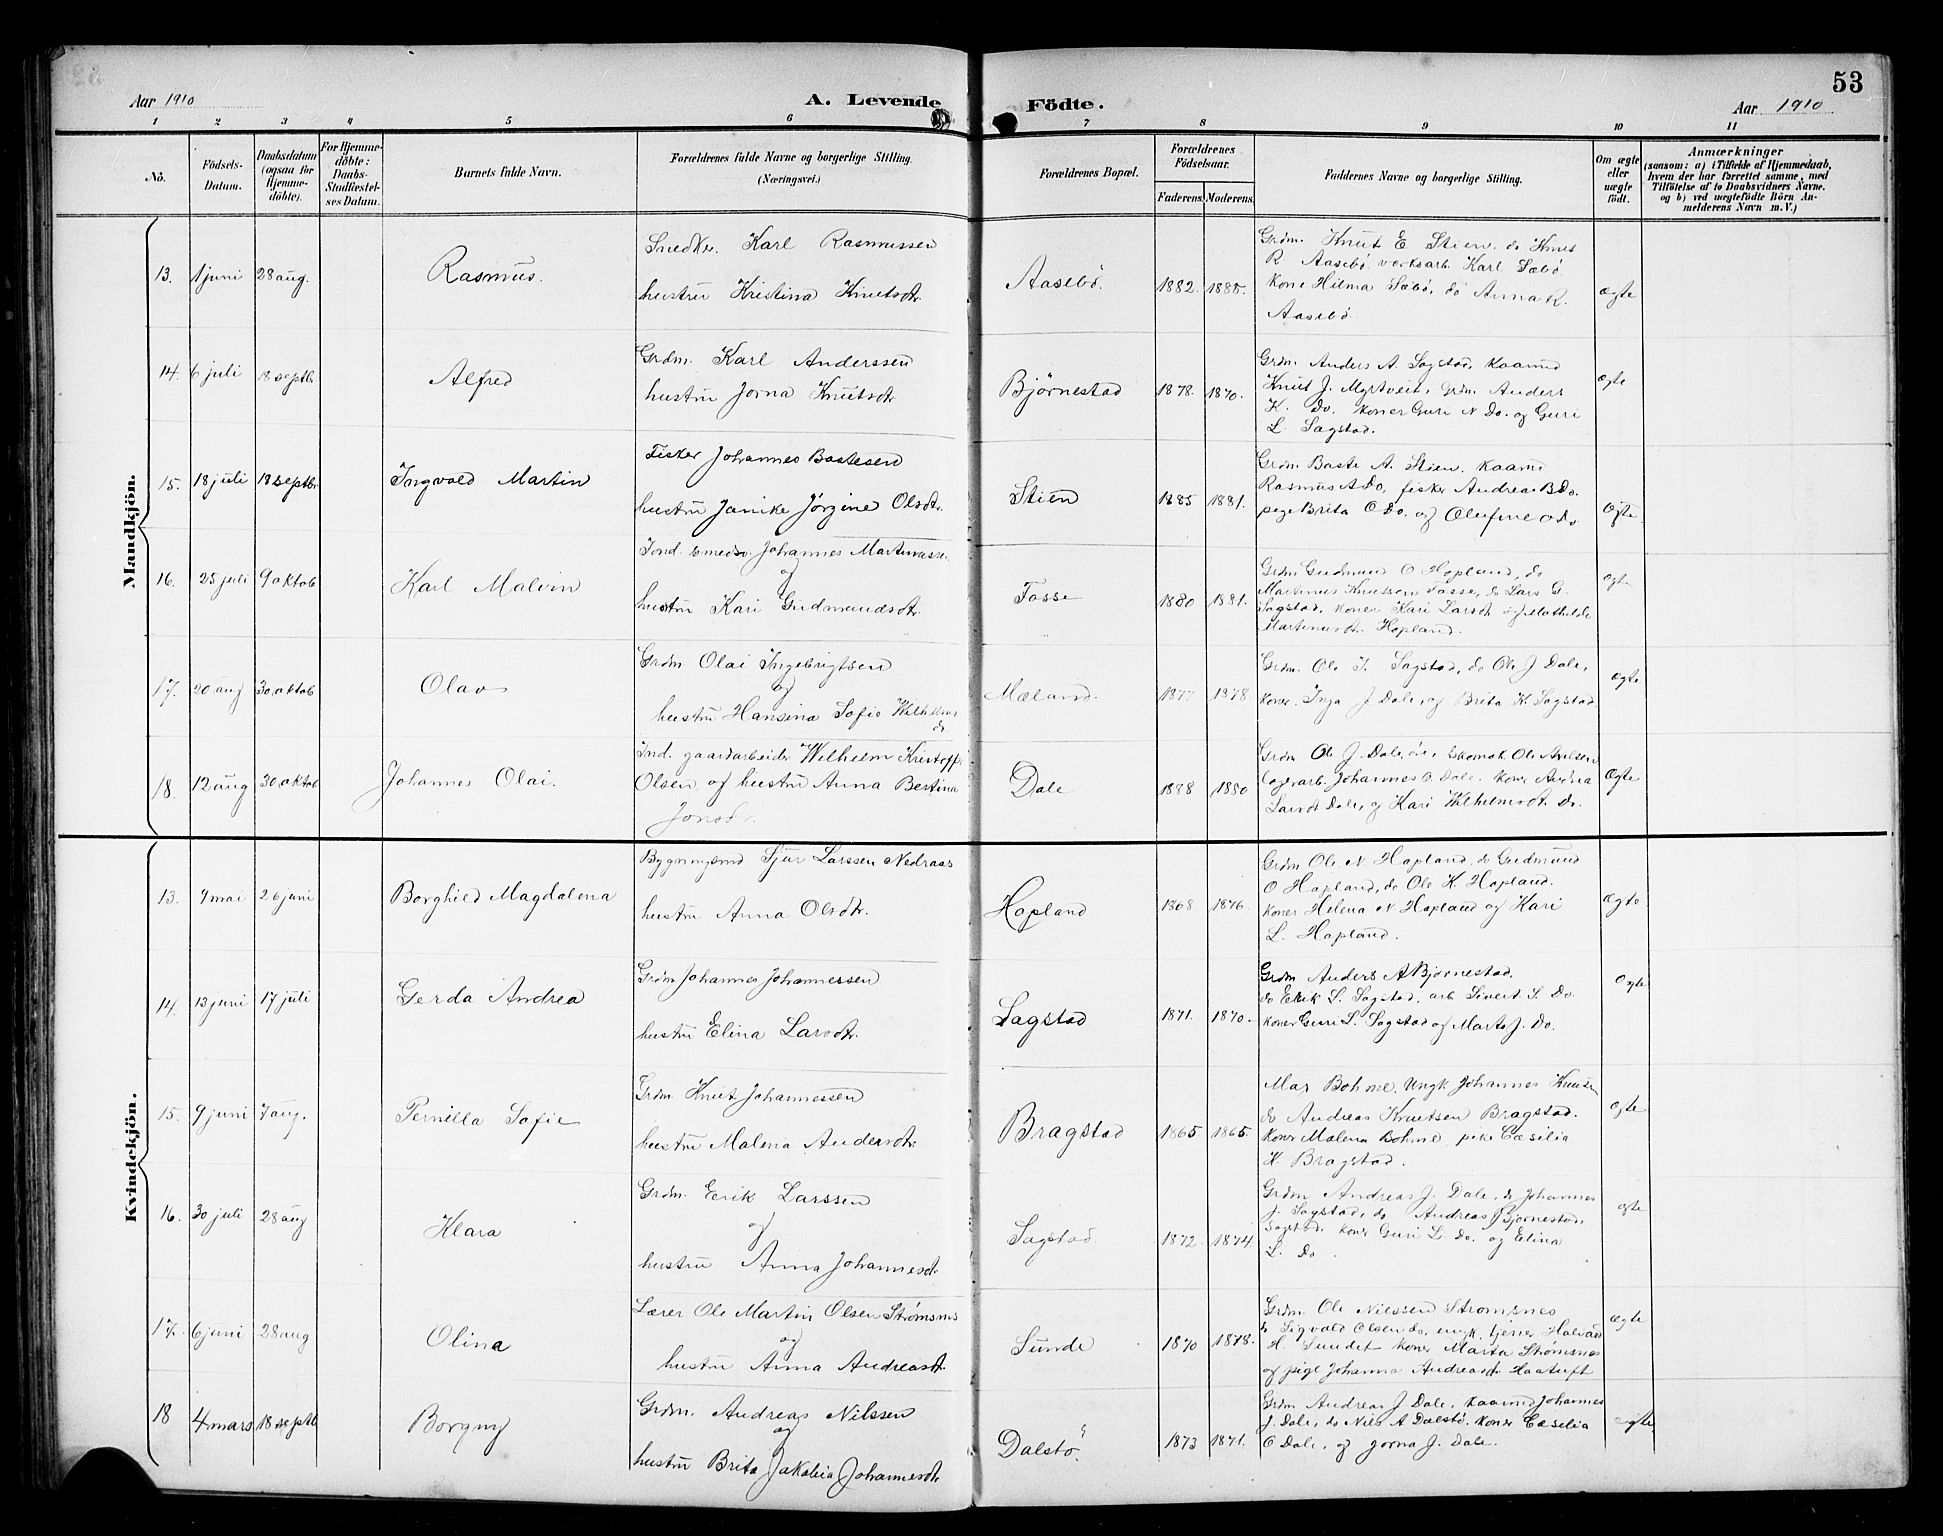 53
Aar 1910
A. Levende
Födte.
Aar 1910
1 2 3 4 5 6 7 8 9 10 11
No.
Födsels-
Datum.
Daabsdatum
(ogsaa for
Hjemme-
döbte).
For Hjemme-
döbte:
Daabs-
Stadfæstel-
ses Datum.
Barnets fulde Navn.
Forældrenes fulde Navne og borgerlige Stilling.
(Næringsvei.)
Forældrenes Bopæl.
Forældrenes
Födselsaar.
Faderens.
Moderens.
Faddernes Navne og borgerlige Stilling.
Om ægte
eller
uægte
födt.
Anmærkninger
(saasom: a) i Tilfælde af Hjemmedaab,
hvem der har forrettet samme, med
Tilföielse af to Daabsvidners Navne.
og b) ved uægtefödte Börn An-
melderens Navn m. V.)
Mandkjön.
13. 1 juni 28 aug. Rasmus.
Snedker. Karl Rasmussen
hustru Kristina Knutsdtr.
Aasebö. 1882. 1885.
Grdm. Knut E Stien. do Knut
R Aasebö. verksarb. Karl Sæbö.
Kone Hilma Sæbö, do Anna R.
Aasebö
ægte
14. 6 juli 18 septbr Alfred
Grdm. Karl Anderssen
hustru Jorna Knutsdtr
Björnestad 1878. 1870.
Grdm. Anders A. Sagstad, Kaarmd
Knut J. Myrtveit, Grdm. Anders
K. Do. Koner Guri N Do. og Guri
L. Sagstad.
ægte
15. 18 juli 18 septbr. Ingvald Martin
Fisker Johannes Bastesen
hustru Janike Jörgine Olsdtr.
Stien 1885 1881.
Grdm. Baste A. Stien. Kaarmd
Rasmus A Do, fisker Andreas B Do.
pige Brita O Do. og Olufine O Do.
Ægte.
16. 25 juli 9 oktob Karl Malvin
Ind. smedsv. Johannes Martinusse.
og
hustru Kari Gudmundsdtr.
Fosse 1880 1881.
Grdm Gudmund O Hopland, do
Martinus Knutsson Fosse, do Lars G.
Sagstad, Koner Kari Larsdt og Mathilde
Martinusdtr. Hopland.
ægte
17. 20 aug 30 oktob Olav
Grdm Olai Ingebrigtsen
og
hustru Hansina Sofie Wilhelms
dr
Mæland. 1877 1878.
Grdm. Ole I. Sagstad, do Ole J Dale,
Koner. Inga J Dale, og Brita K. Sagstad.
ægte
18. 12 aug 30 oktob Johannes Olai.
Ind. gaardarbeider Wilhelm Kristoff
Olsen og hustru Anna Bertina
Jonsdr.
Dale 1888 1880
Grdm Ole J. Dale, Skomak. Ole Axelsen
Johannes O. Dale. Koner Andrea
Larsdt Dale, og Kari Wilhelmsdt. Do.
Ægte
Kvindekjön.
13. 9 mai 26 juni Borghild Magdalena
Bygningsmd Sjur Larssen Nedraas
hustru Anna Olsdtr.
Hopland 1868 1876.
Grdm Ole N. Hopland, do Gudmund
O Hopland, do Ole K. Hopland.
Koner Helena N Hopland og Kari
L. Hopland.
Ægte
14. 13 juni 17 juli Gerda Andrea
Grdm Johannes Johannessen
hustru Elina Larsdtr.
Sagstad 1871. 1870.
Grdm Anders A Bjørnestad.
do Erik L. Sagstad, arb Sivert S. Do.
Koner Guri L. Sagstad og Marta J. Do.
Ægte
15. 9 juni 7 aug. Pernilla Sofie
Grdm. Knut Johannessen
hustru Malena Andersdtr.
Bragstad 1865 1865.
Mas Bohme. Ungk Johannes Knutsen
do Andreas Knutsen Bragstad.
Koner Malena Bohme, pike Cæsilia
K. Bragstad.
ægte
16. 30 juli 28 aug Klara
Grdm. Erik Larssen
og
hustru Anna Johannesdt.
Sagstad 1872. 1874
Grdm Andreas J. Dale, do Johannes
J. Sagstad, do Andreas J Bjørnestad.
Sagstad. Koner Guri L. Do. og Elina
L. Do.
ægte
17. 6 juni 28 aug Olina
Lærer Ole Martin Olsen Strømsnes
og
hustru Anna Andreasdt.
Sunde 1870 1878.
Grdm. Ole Nilssen Strømsnes
do Sigvald Olsen do, ungk. tjener Halvard
H. Sundet Koner Marta Strømsnes
og pige Johanna Andreasdt Haatuft
ægte
18 4 mars 18 septb Borgny
Grdm. Andreas Nilssen
og
hustru Brita Jakobia Johannesdt.
Dalstø. 1873 1871.
Grdm Andreas J Dale, Kaarmd Johannes
J. Dale, do Nils A Dalstø. Koner Cæselia
O Dale, og Jorna J. Dale.
ægte